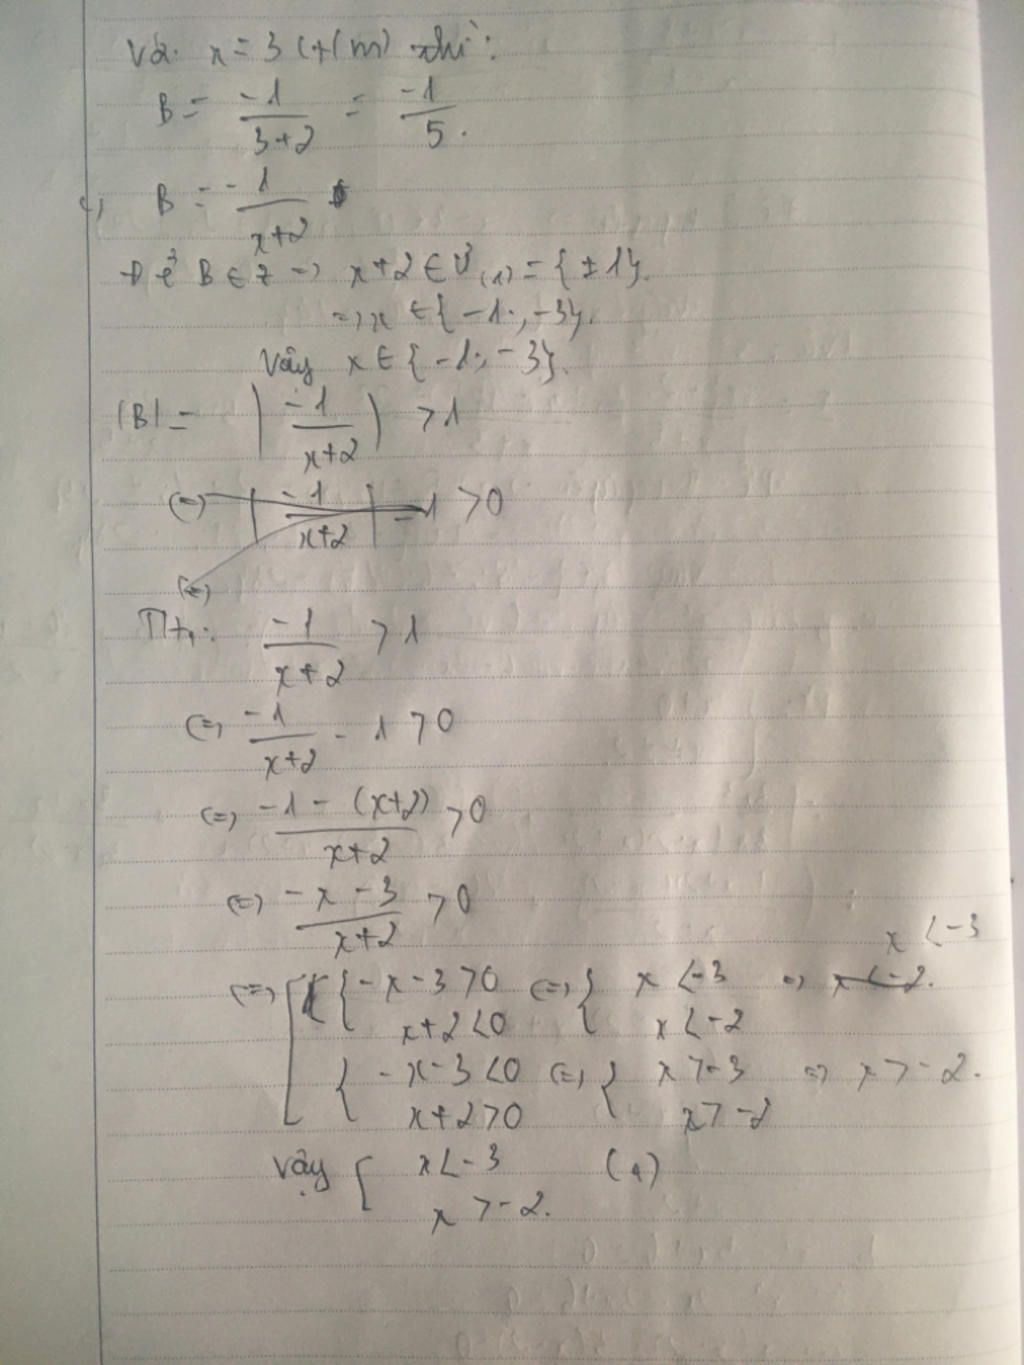 Với x = 3 (t/m) thì:
B = -1/(3+2) = -1/5.
c, B = -1/(x+2)
Để B ∈ Z => x+2 ∈ Ư(1) = {±1}.
=> x ∈ {-1; -3}.
Vậy x ∈ {-1; -3}.
|B| = |-1/(x+2)| > 1
<=> |-1/(x+2)| - 1 > 0
<=>
TH1: -1/(x+2) > 1
<=> -1/(x+2) - 1 > 0
<=> (-1 - (x+2))/(x+2) > 0
<=> (-x - 3)/(x+2) > 0
x < -3
<=> [ { -x - 3 > 0 <=> { x < -3 => x < -2.
x + 2 < 0 x < -2
{ -x - 3 < 0 <=> { x > -3 => x > -2.
x + 2 > 0 x > -2
Vậy [ x < -3 (1)
x > -2.